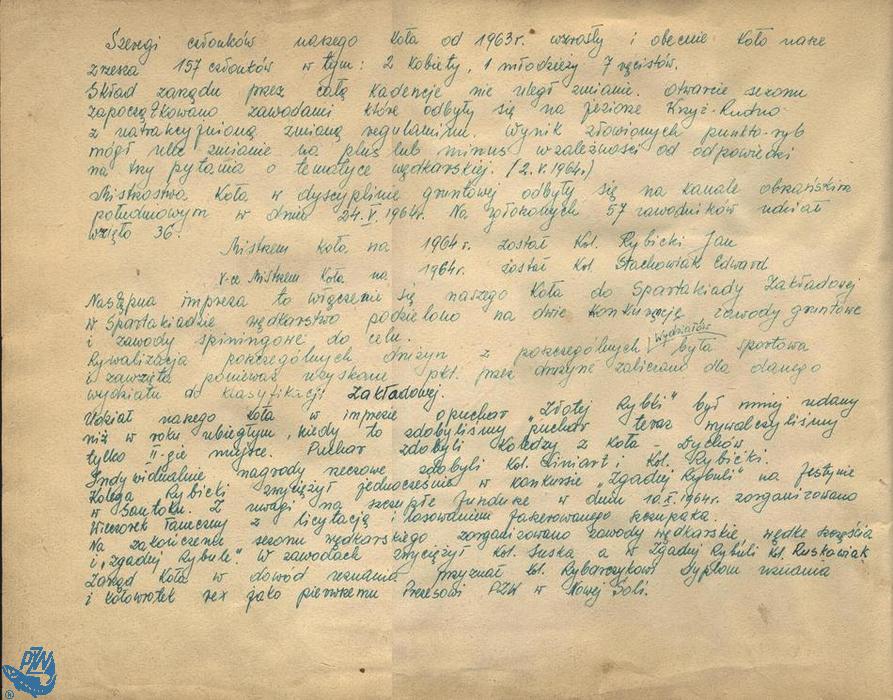 Szeregi członków naszego Koła od 1963r. wzrosły i obecnie Koło nasze
zrzesza 157 członków w tym: 2 kobiety, 1 młodzieży 7 ręcistów.
Skład zarządu przez całą kadencje nie uległ zmianie. Otwarcie sezonu
zapoczątkowano zawodami które odbyły się na jeziorze Krzyż-Rudno-
z uatrakcyjnioną zmianą regulaminu. Wynik złowionych punkto-ryb
mógł ulec zmianie na plus lub minus w zależności od odpowiedzi
na trzy pytania o tematyce wędkarskiej. (2.V.1964r.)
Mistrzostwa Koła w dyscyplinie gruntowej odbyły się na kanale obrzańskim
południowym w dniu 24.V.1964r. Na zgłoszonych 57 zawodników udział
wzięło 36.
Mistrzem Koła na 1964r. został Kol. Rybicki Jan
V-ce Mistrzem Koła na 1964r. został Kol. Stachowiak Edward
Następna impreza to włączenie się naszego Koła do Spartakiady Zakładowej
w Spartakiadzie wędkarstwo podzielono na dwie konkurencje zawody gruntowe
i zawody spiningowe do celu.
Rywalizacja poszczególnych drużyn z poszczególnych Wydziałów była sportowa
i zawzięta ponieważ uzyskane pkt. przez drużynę zaliczano dla danego
wydziału do klasyfikacji Zakładowej.
Udział naszego Koła w imprezie o puchar „Złotej Rybki" był mniej udany
niż w roku ubiegłym, kiedy to zdobyliśmy puchar teraz wywalczyliśmy
tylko II-gie miejsce. Puchar zdobyli Koledzy z Koła - Dychów.
Indywidualnie nagrody rzeczowe zdobyli Kol. Liniart i Kol. Rybicki.
Kolega Rybicki zwyciężył jednocześnie w konkursie „Zgadnij Rybuli" na festynie
w Santoku. Z uwagi na szczupłe fundusze w dniu 10.X.1964r. zorganizowano
Wieczorek taneczny z licytacją i losowaniem faszerowanego szczupaka.
Na zakończenie sezonu wędkarskiego zorganizowano zawody wędkarskie, wędkę szczęścia
i „zgadnij Rybule". W zawodach zwyciężył Kol. Suska a w Zgadnij Rybuli Kol. Ruskowiak
Zarząd Koła w dowód uznania przyznał kol. Rybarczykowi Dyplom uznania
i kołowrotek rex jako pierwszemu Prezesowi PZW w Nowej Soli.
PZW
®